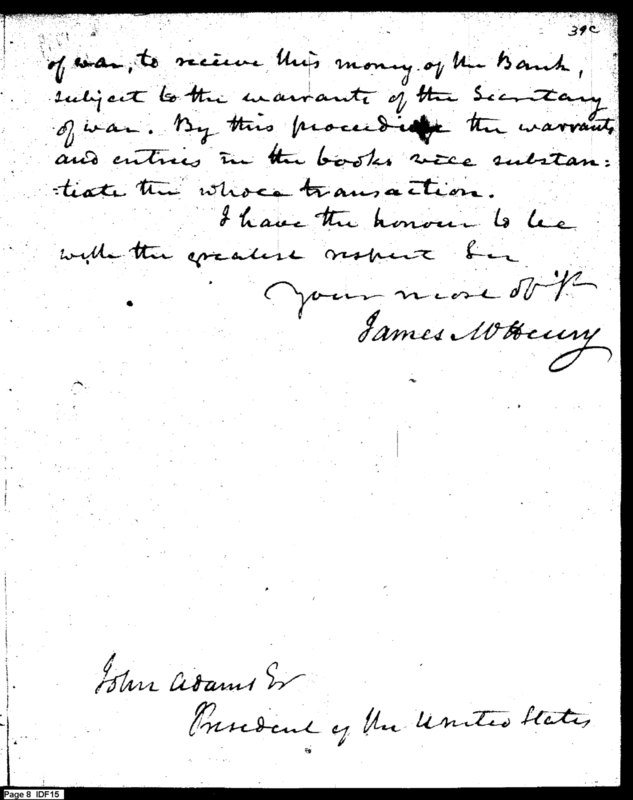 39c
of war, to receive this money of the Bank,
subject to the warrants of the Secretary
of war. By this proceeding the warrants
and entries in the books will substan=
=tiate the whole transaction.
I have the honour to be
with the greatest respect Sir
Your most obt
James McHenry
John Adams Esr
President of the United States
Page 8 IDF15